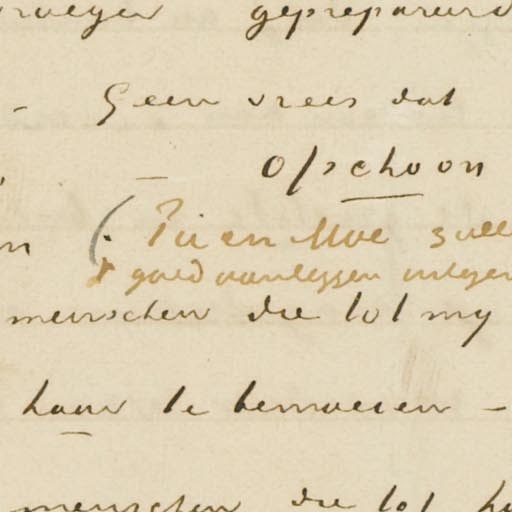 vroeger geprepareerd
- Geen vrees dat
- Ofschoon
( Pa en Moe zulle
goed aanleggen
menschen die tot my
haar te bemoeien -
menschen die tot h